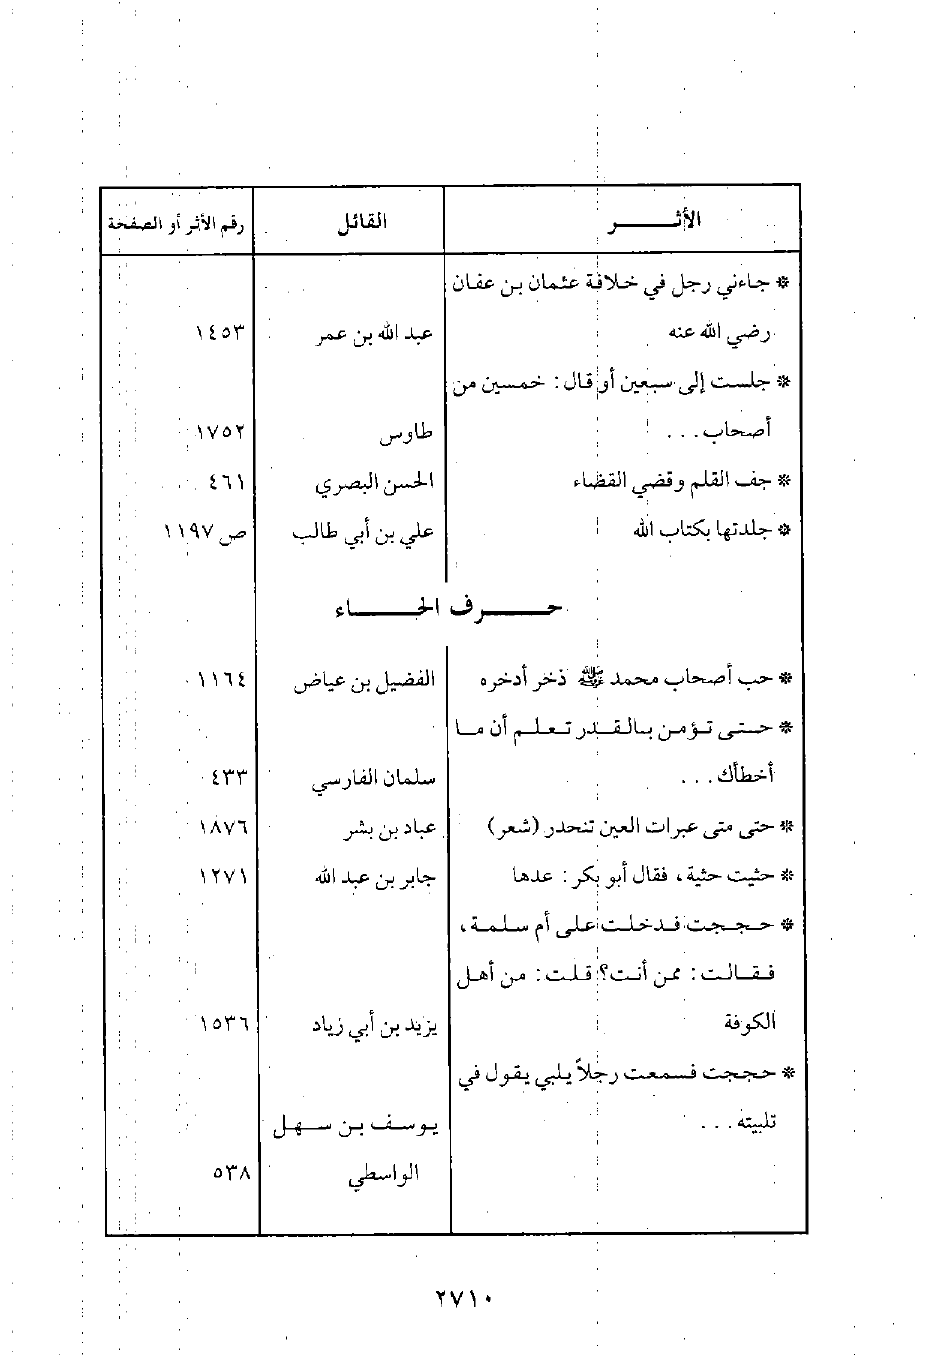 الأثــــر القائل رقم الأثر أو الصفحة
* جاءني رجل في خلافة عثمان بن عفان
رضي الله عنه عبد الله بن عمر ١٤٥٣
* جلست إلى سبعين أو قال: خمسين من
أصحاب... طاوس ١٧٥٢
* جف القلم وقضي القضاء الحسن البصري ٤٦١
* جلدتها بكتاب الله علي بن أبي طالب ص ١١٩٧
حــــرف الحــــاء
* حب أصحاب محمد ﷺ ذخر أدخره الفضيل بن عياض ١١٦٤
* حتى تؤمن بالقدر تعلم أن ما
أخطأك... سلمان الفارسي ٤٣٣
* حتى متى عبرات العين تنحدر (شعر) عباد بن بشر ١٨٧٦
* حثيت حثية، فقال أبو بكر: عدها جابر بن عبد الله ١٢٧١
* حججت فدخلت على أم سلمة،
فقالت: ممن أنت؟ قلت: من أهل
الكوفة يزيد بن أبي زياد ١٥٣٦
* حججت فسمعت رجلاً يلبي يقول في
تلبيته... يوسف بن سهل
الواسطي ٥٣٨
٢٧١٠